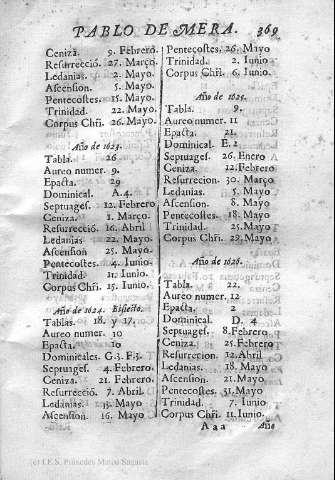 PABLO DE MERA. 369
Ceniza. 9. Febrero.
Resurrecció. 27. Março.
Ledanias. 2. Mayo.
Ascension. 5. Mayo.
Pentecostes. 15. Mayo.
Trinidad. 22. Mayo.
Corpus Chři. 26. Mayo.
Año de 1623.
Tabla. 26
Aureo numer. 9.
Epacta. 29
Dominical. A. 4.
Septuages. 12. Febrero
Ceniza. 1. Março.
Resurrecció. 16. Abril
Ledanias 22. Mayo.
Ascension 25. Mayo
Pentecostes 4. Iunio.
Trinidad. 11. Iunio.
Corpus Chři. 15. Iunio.
Año de 1624. Bisiesto.
Tablas. 18. y 17.
Aureo numer. 10
Epacta. 10
Dominicales. G. 3. F. 3.
Septuages. 4. Febrero.
Ceniza. 21. Febrero.
Resurreció. 7. Abril.
Ledanias. 13. Mayo
Ascension. 16. Mayo
Pentecostes. 26. Mayo
Trinidad. 2. Iunio
Corpus Chři. 6. Iunio.
Año de 1625.
Tabla. 9.
Aureo numer. 11
Epacta. 21.
Dominical. E. 2
Septuages. 26. Enero
Ceniza. 12. Febrero
Resurrecion. 30. Março
Ledanias. 5. Mayo
Ascension. 8. Mayo
Pentecostes. 18. Mayo
Trinidad. 25. Mayo
Corpus Chři. 29. Mayo
Año de 1626.
Tabla. 22.
Aureo numer. 12
Epacta. 2
Dominical. D. 4
Septuages. 8. Febrero
Ceniza. 25. Febrero
Resurrecion. 12. Abril
Ledanias. 18. Mayo
Ascension. 21. Mayo
Pentecostes. 31. Mayo
Trinidad. 7. Iunio
Corpus Chři. 11. Iunio.
Aaa Año
(c) I.E.S. Práxedes Mateo Sagasta